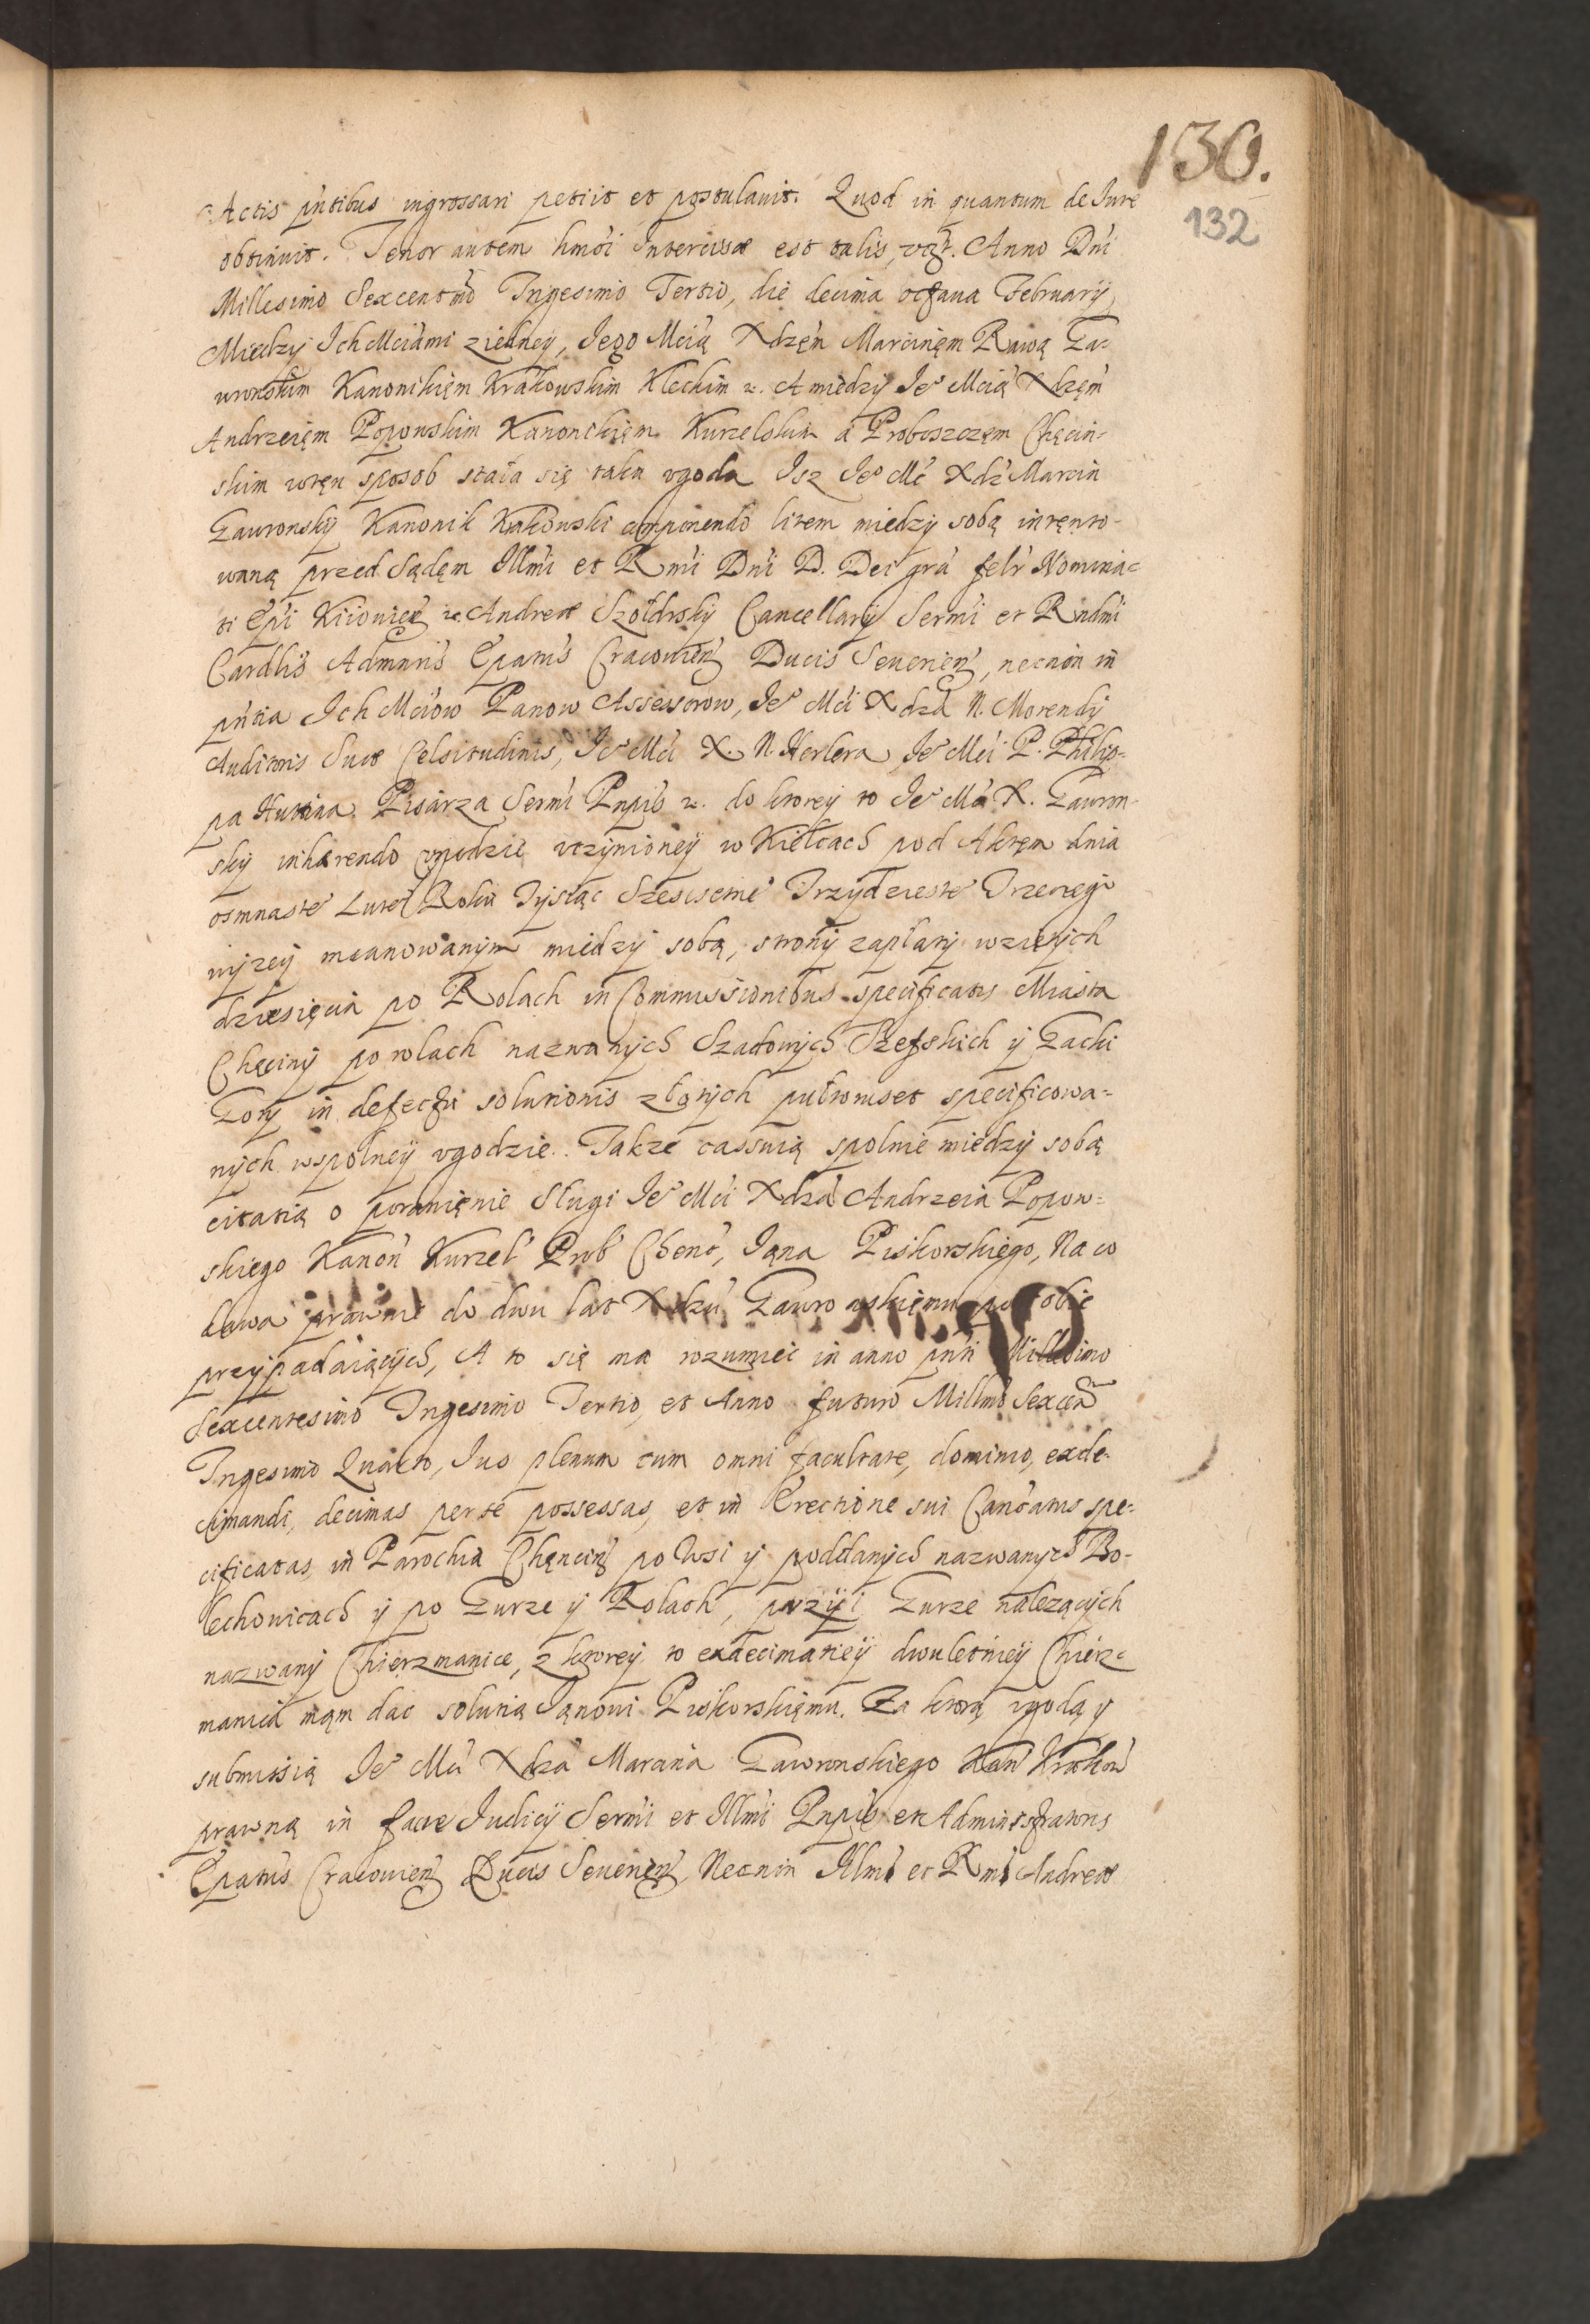 130.
132
Actis pntibus ingrossari petiit et postulauit. Quod in quantum de Iure
obtinuit. Tenor autem hmoi Intercisæ est talis, vzt. Anno Dni
Millesimo Sexcentmo Trigesimo Tertio, die decima octaua February,
Miedzy Ich Mciami ziedney, Jego Mcią Xdzęm Marcinęm Rawą Ga-
wronskim Kanonikięm Krakowskim Kleckim etc. A miedzy Je° Mcią Xdzęm
Andrzeięm Popowskim Kanonikięm Kurzelskim a Proboszczęm Chęcin-
skim wtęn sposob stała się taka vgoda Isz Je° Mć Xdz Marcin
Gawronsky Kanonik Krakowski componendo litem miedzy sobą intęnto-
waną przed Sądęm Illmi et Rmi Dni D. Dei gra felr Nomina-
ti Epi Kiiowien etc. Andreæ Szołdrsky Cancellary Sermi et Rndmi
Cardlis Admnris Epatus Cracouien Ducis Seuerien, necnon in
pntia Ich Mciow Panow Assessorow, Je° Mci Xdza N. Morendy
Auditoris Suæ Celsitudinis, Je° Mci X. N. Herlera, Je° Mci P. Philip-
pa Huttina Pisarza Sermi Pnpis etc. do ktorey to Je° Mć X. Gawron-
sky inhærendo vgodzie vczynioney w Kielcach pod Aktęm dnia
osmnaste° Lute° Roku Tysiąc Szescsetne° Trzydzieste° Trzeciego
wyzey mianowanym miedzy sobą, strony zapłaty wziętych
dziesięcin po Rolach in Commissionibus specificatis Miasta
Chęciny po rolach nazwanych Szadowych Szefskich y Zacki
Gory in defectu solutionis złotych pułtoruset specificowa-
nych wspolney vgodzie. Takze cassuią spolnie miedzy sobą
citatią o poranięnie Sługi Je° Mci Xdza Andrzeia Popow-
skiego Kanon Kurzel Prob Chenc, Jana Piskorskiego, Na co
dawa prawne do dwu lat Xdzu Gawronskięmu po sobie
przypadaiących, A to się ma rozumiec in anno pnti Millesimo
Sexcentesimo Trigesimo Tertio, et Anno futuro Millmo Sexcen
Trigesimo Quarto, Ius plenum cum omni facultate, dominio, exde-
cimandi, decimas per se possessas, et in Erectione sui Canōatus spe-
cificatas in Parochia Chęncin po Wsi y poddanych nazwanych Bo-
lechowicach y po Gurze y Rolach, przy i Gurze nalezących
nazwany Chierzmanice, z ktorey to exdecimatiey dwuletniey Chierz-
manicu mąm dac solutią Janowi Piskorskięmu. Za ktorą vgodą y
submissią Je° Mci Xdza Marcina Gawronskiego Kan Krakow
prawną in facie Iudicy Sermi et Illmi Pnpis et Administratoris
Epatus Cracouien Ducis Seuerien, Necnon Illmi et Rmi Andreæ